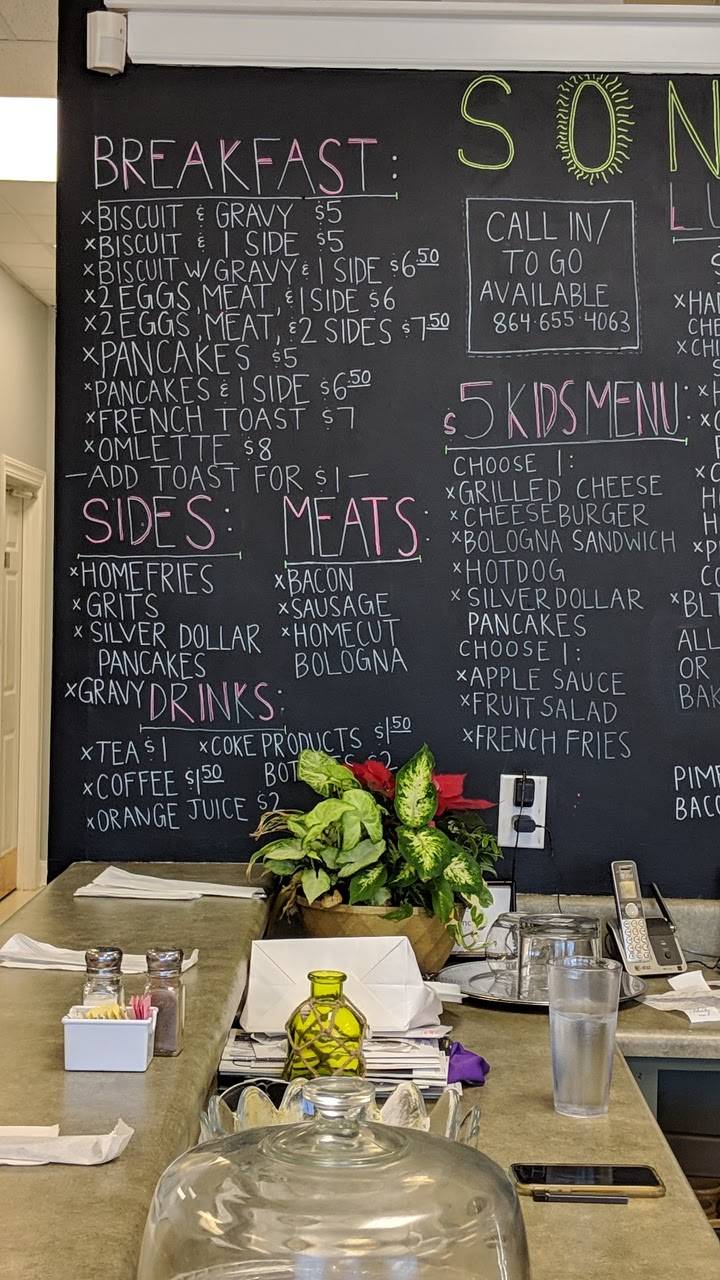 SON
BREAKFAST:
×BISCUIT & GRAVY $5
×BISCUIT & 1 SIDE $5
×BISCUIT W/GRAVY & 1 SIDE $6.50
×2 EGGS, MEAT, & 1 SIDE $6
×2 EGGS, MEAT, & 2 SIDES $7.50
×PANCAKES $5
×PANCAKES & 1 SIDE $6.50
×FRENCH TOAST $7
×OMLETTE $8
—ADD TOAST FOR $1—
SIDES:
×HOMEFRIES
×GRITS
×SILVER DOLLAR
PANCAKES
×GRAVY
MEATS:
×BACON
×SAUSAGE
×HOMECUT
BOLOGNA
DRINKS:
×TEA $1
×COFFEE $1.50
×ORANGE JUICE $2
×COKE PRODUCTS $1.50
CALL IN/
TO GO
AVAILABLE
864·655·4063
$5 KIDS MENU:
CHOOSE 1:
×GRILLED CHEESE
×CHEESEBURGER
×BOLOGNA SANDWICH
×HOTDOG
×SILVER DOLLAR
PANCAKES
CHOOSE 1:
×APPLE SAUCE
×FRUIT SALAD
×FRENCH FRIES
×BLT
ALL
OR
BAK
PIME
BACO